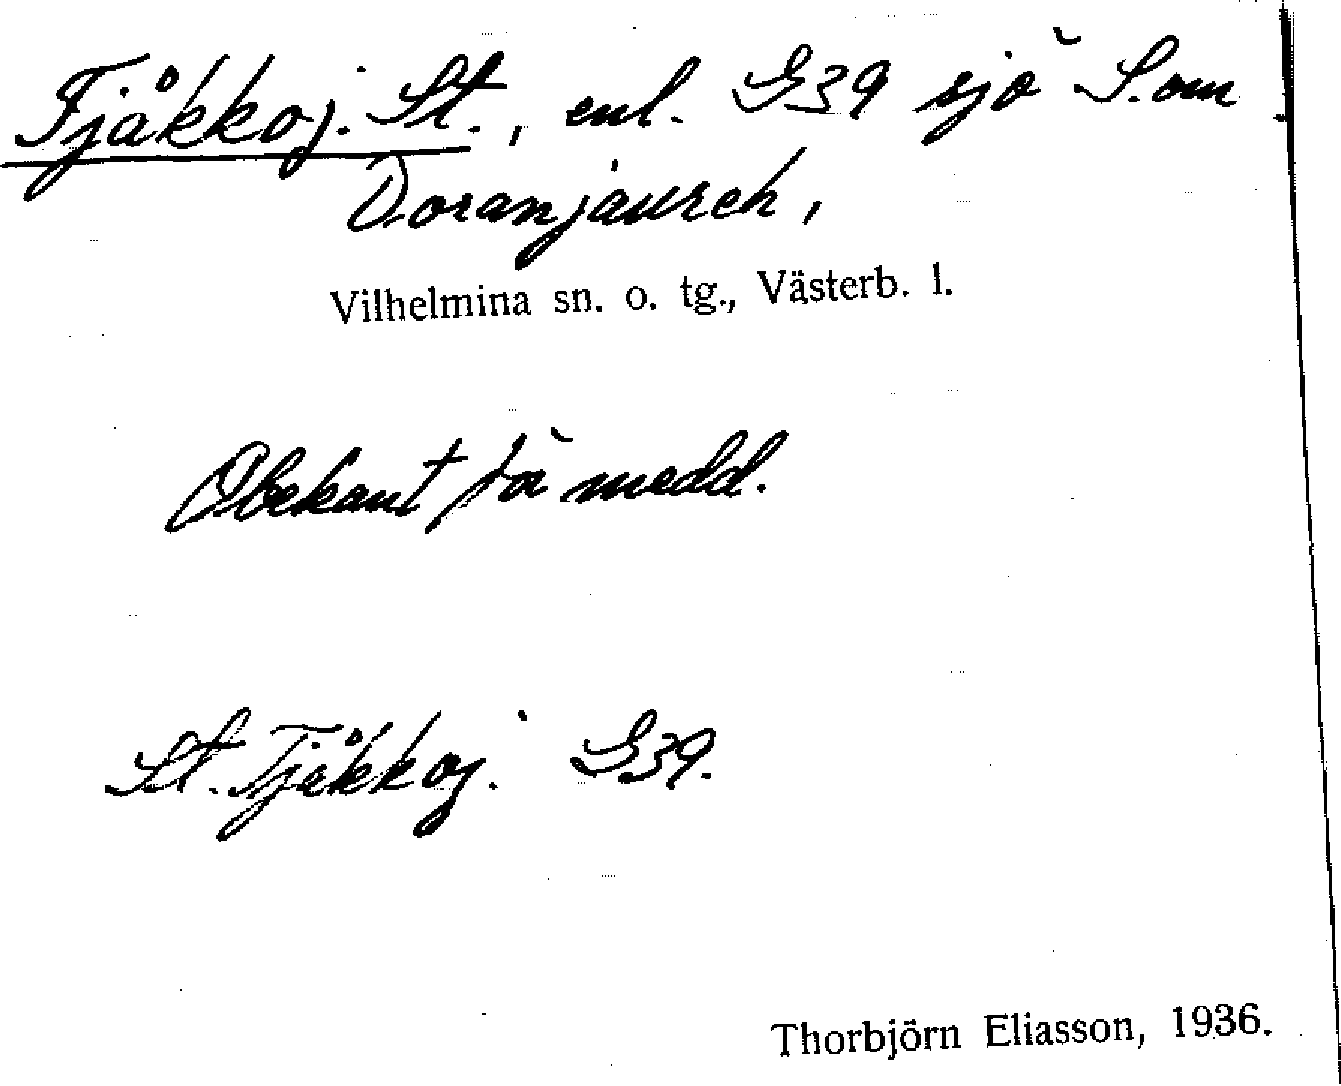 Tjåkkoj. St., enl. G39 sjö S. om
Doranjaureh,
Vilhelmina sn. o. tg., Västerb. l.
Obekant på medd.
St. Tjåkkoj. G39.
Thorbjörn Eliasson, 1936.